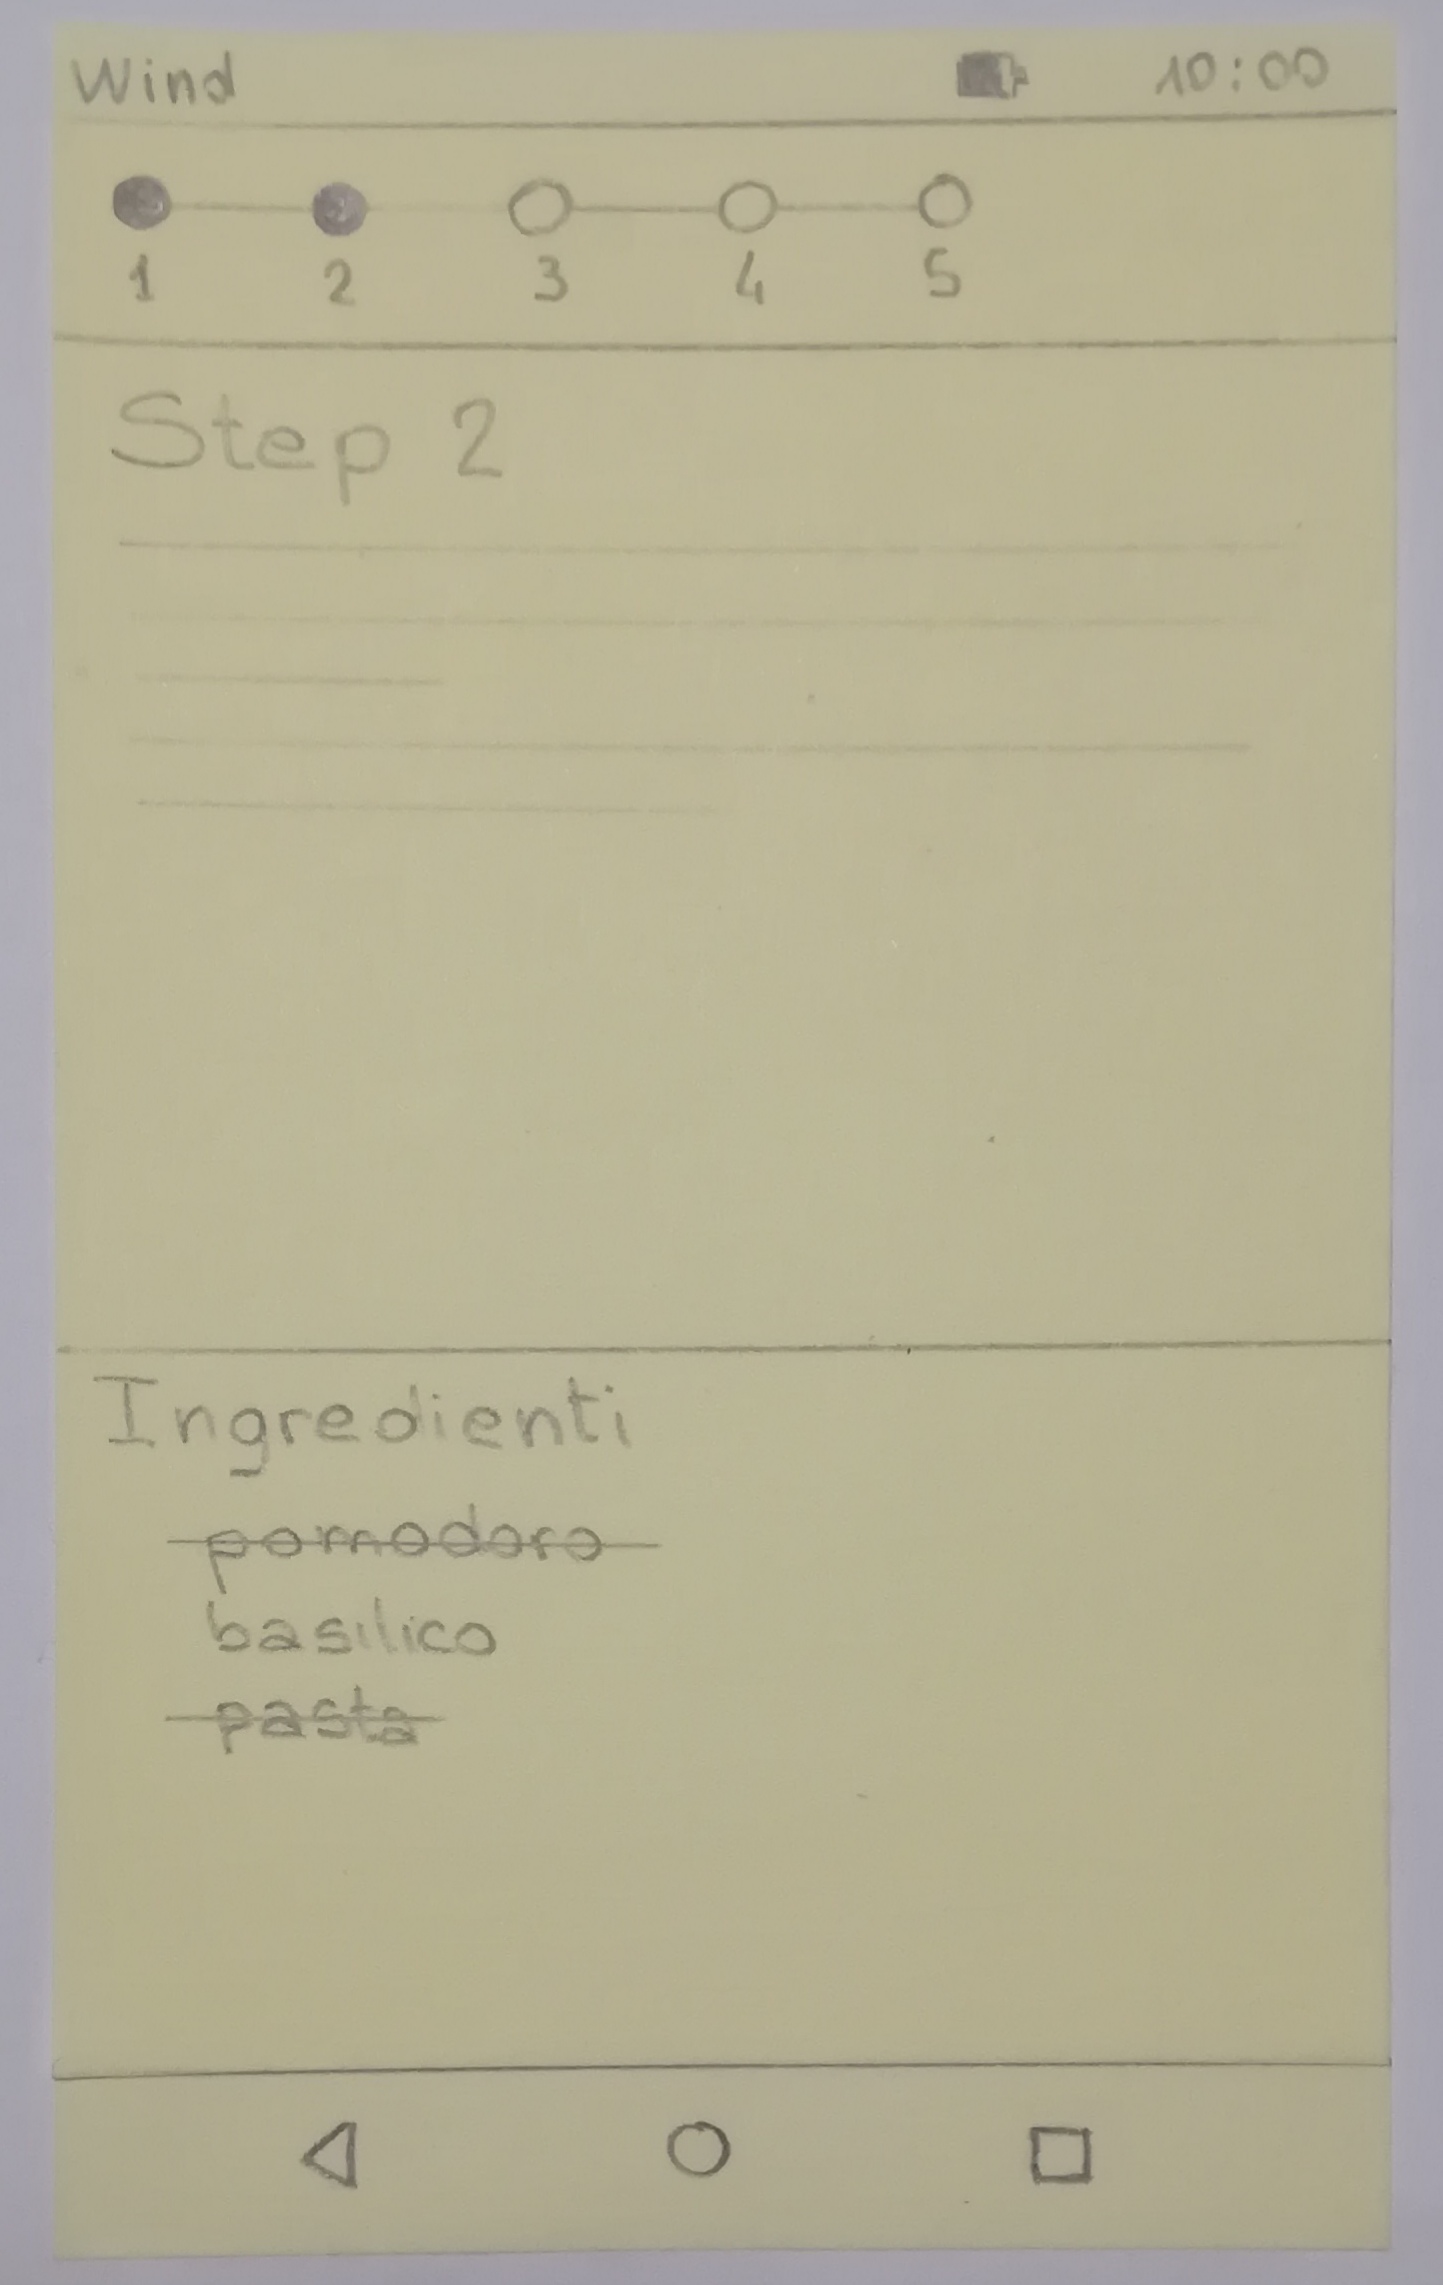 Wind 10:00
1 2 3 4 5
Step 2
Ingredienti
pomodoro
basilico
pasta